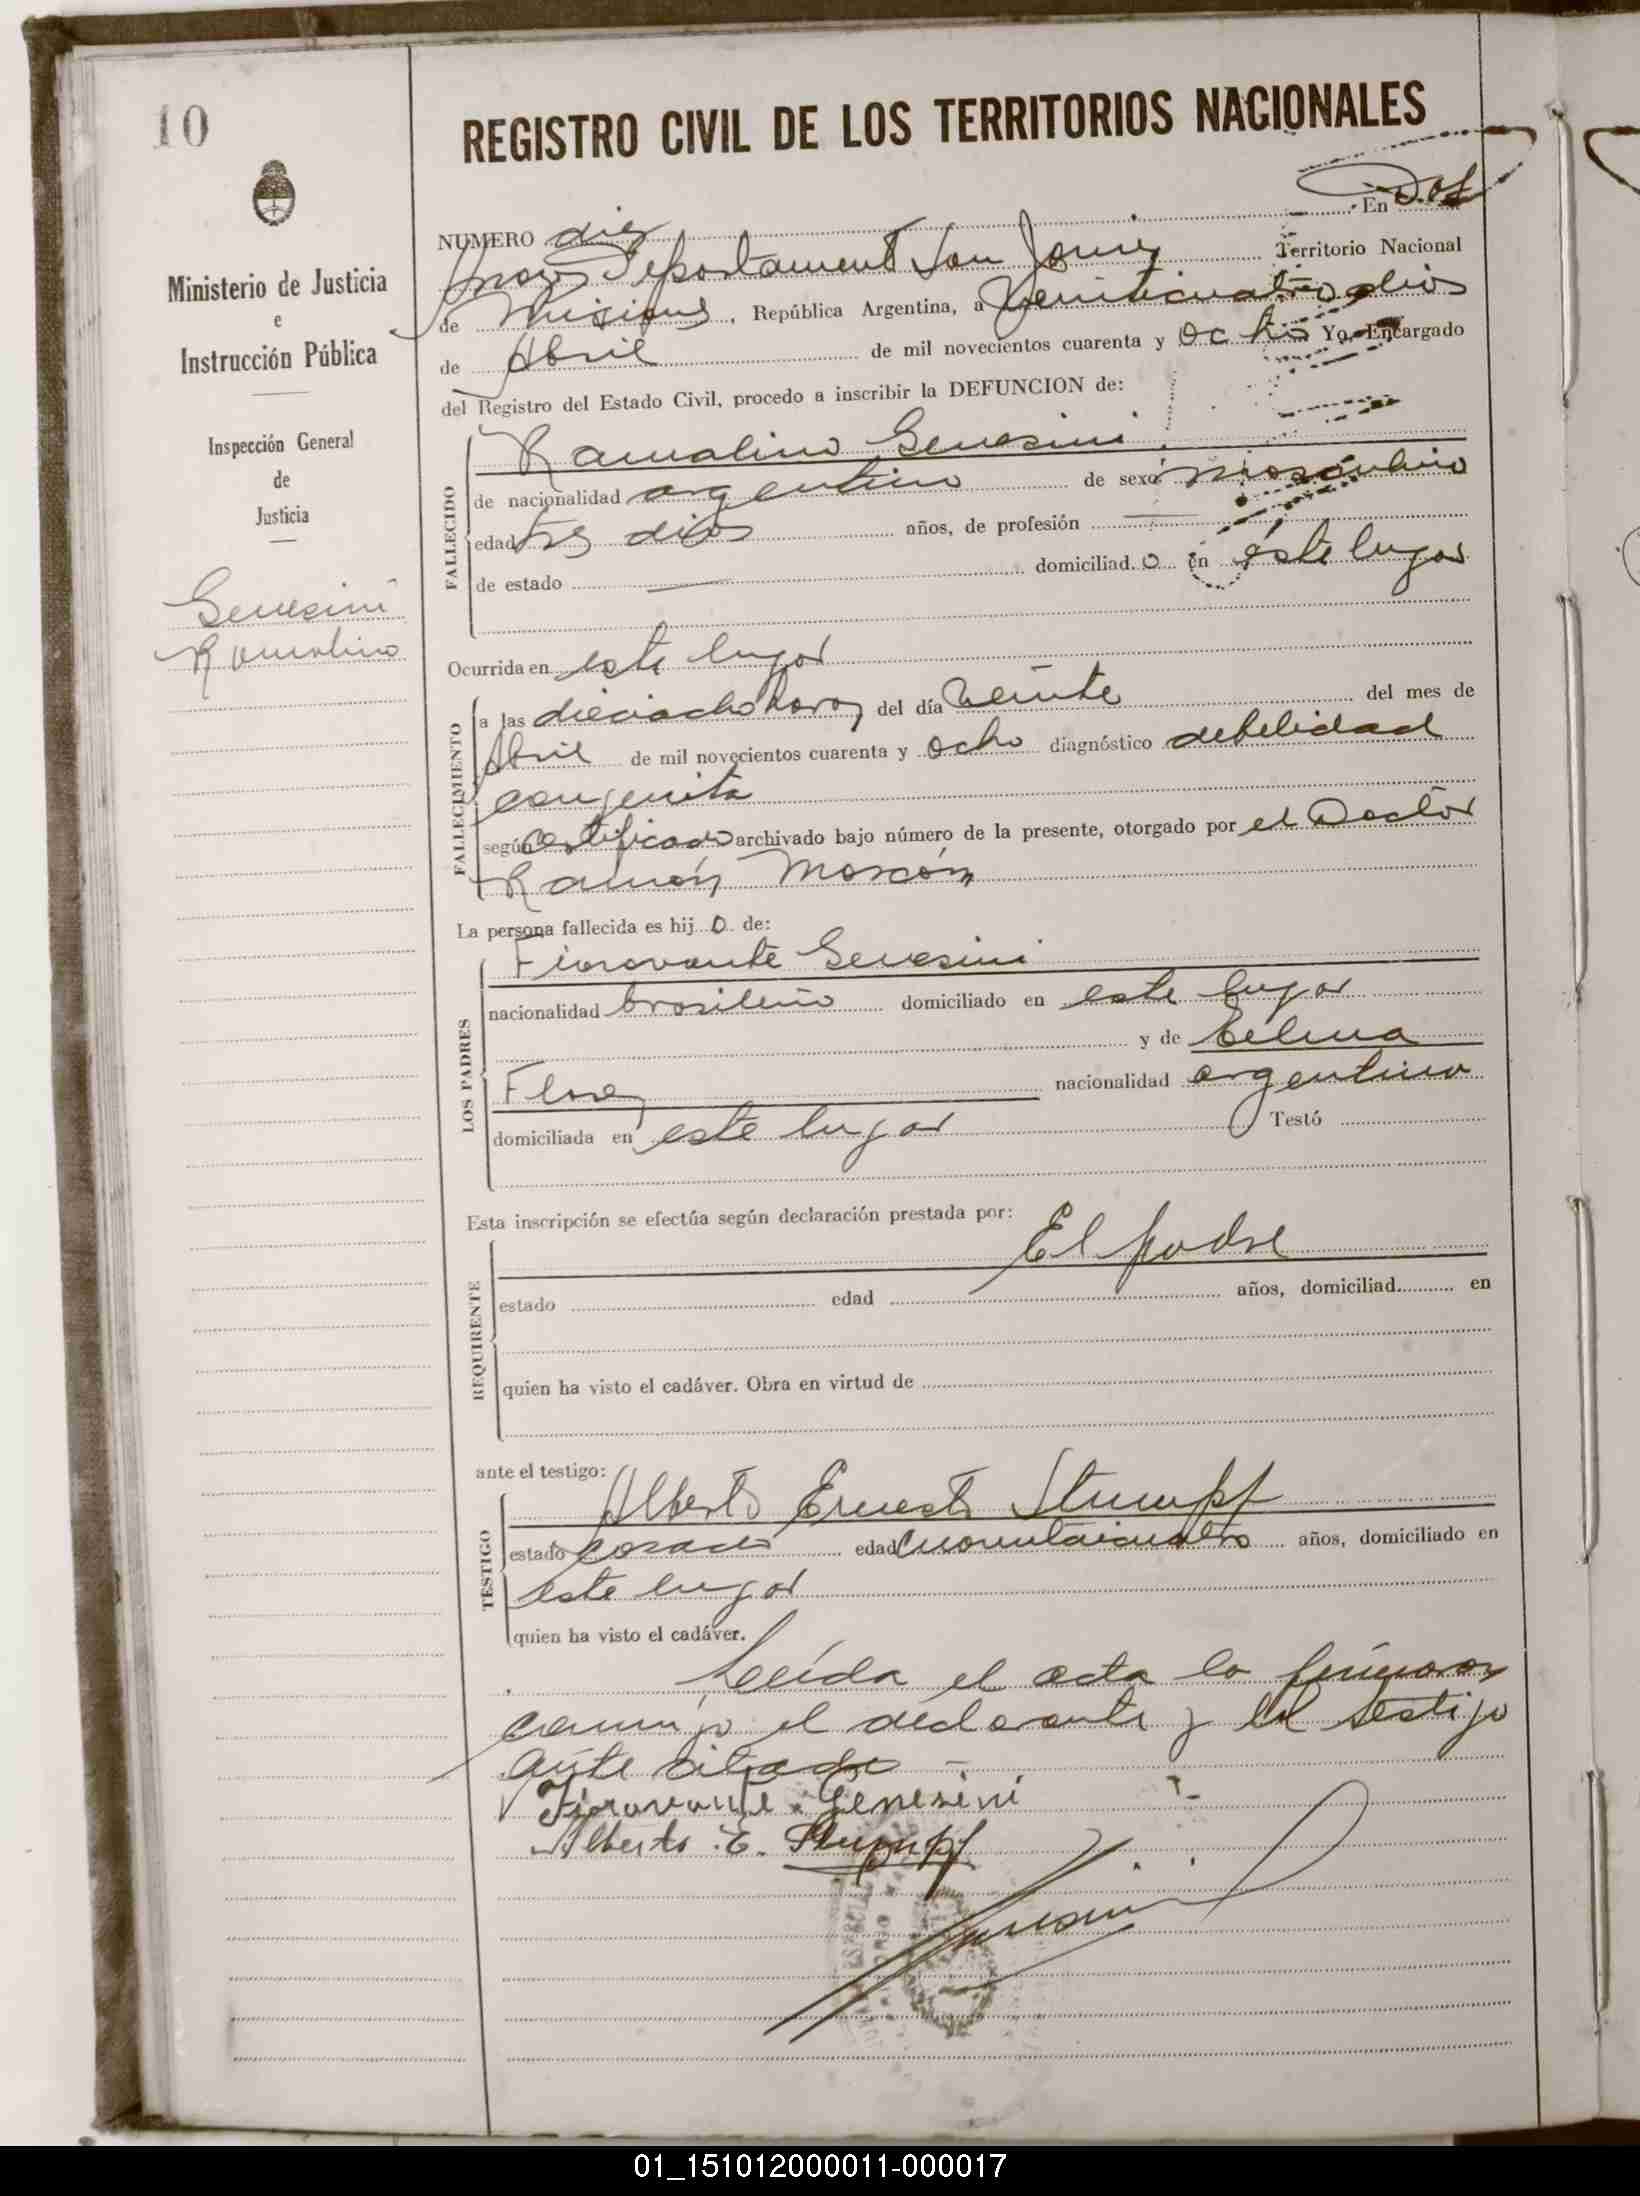 10
REGISTRO CIVIL DE LOS TERRITORIOS NACIONALES
Ministerio de Justicia
e
Instrucción Pública
Inspección General
de
Justicia
Genesini
Ramalino
NUMERO diez En Dos
Departamento San Territorio Nacional
de Misiones, República Argentina, a Veinticuatro dias
de Abril de mil novecientos cuarenta y ocho Yo, Encargado
del Registro del Estado Civil, procedo a inscribir la DEFUNCION de:
FALLECIDO
Ramalino Genesini
de nacionalidad argentino de sexo masculino
edad tres dias años, de profesión
de estado domiciliad o en éste lugar
Ocurrida en este lugar
FALLECIMIENTO
a las dieciocho horas del día veinte del mes de
Abril de mil novecientos cuarenta y ocho diagnóstico debelidad
congenita
según certificado archivado bajo número de la presente, otorgado por el Doctor
Ramón
La persona fallecida es hij o de:
LOS PADRES
Fioravante Genesini
nacionalidad brasileño domiciliado en este lugar
y de Celma
Flores nacionalidad argentina
domiciliada en este lugar Testó
Esta inscripción se efectúa según declaración prestada por:
REQUIRENTE
El padre
estado edad años, domiciliad en
quien ha visto el cadáver. Obra en virtud de
ante el testigo:
TESTIGO
Alberto Ernesto Stumpf
estado casado edad cuarentaicuatro años, domiciliado en
este lugar
quien ha visto el cadáver.
Leída el acta la firmaron
conmigo el declarante y el testigo
ante citado
Fioravante Genesini
Alberto E. Stumpf
01_151012000011-000017